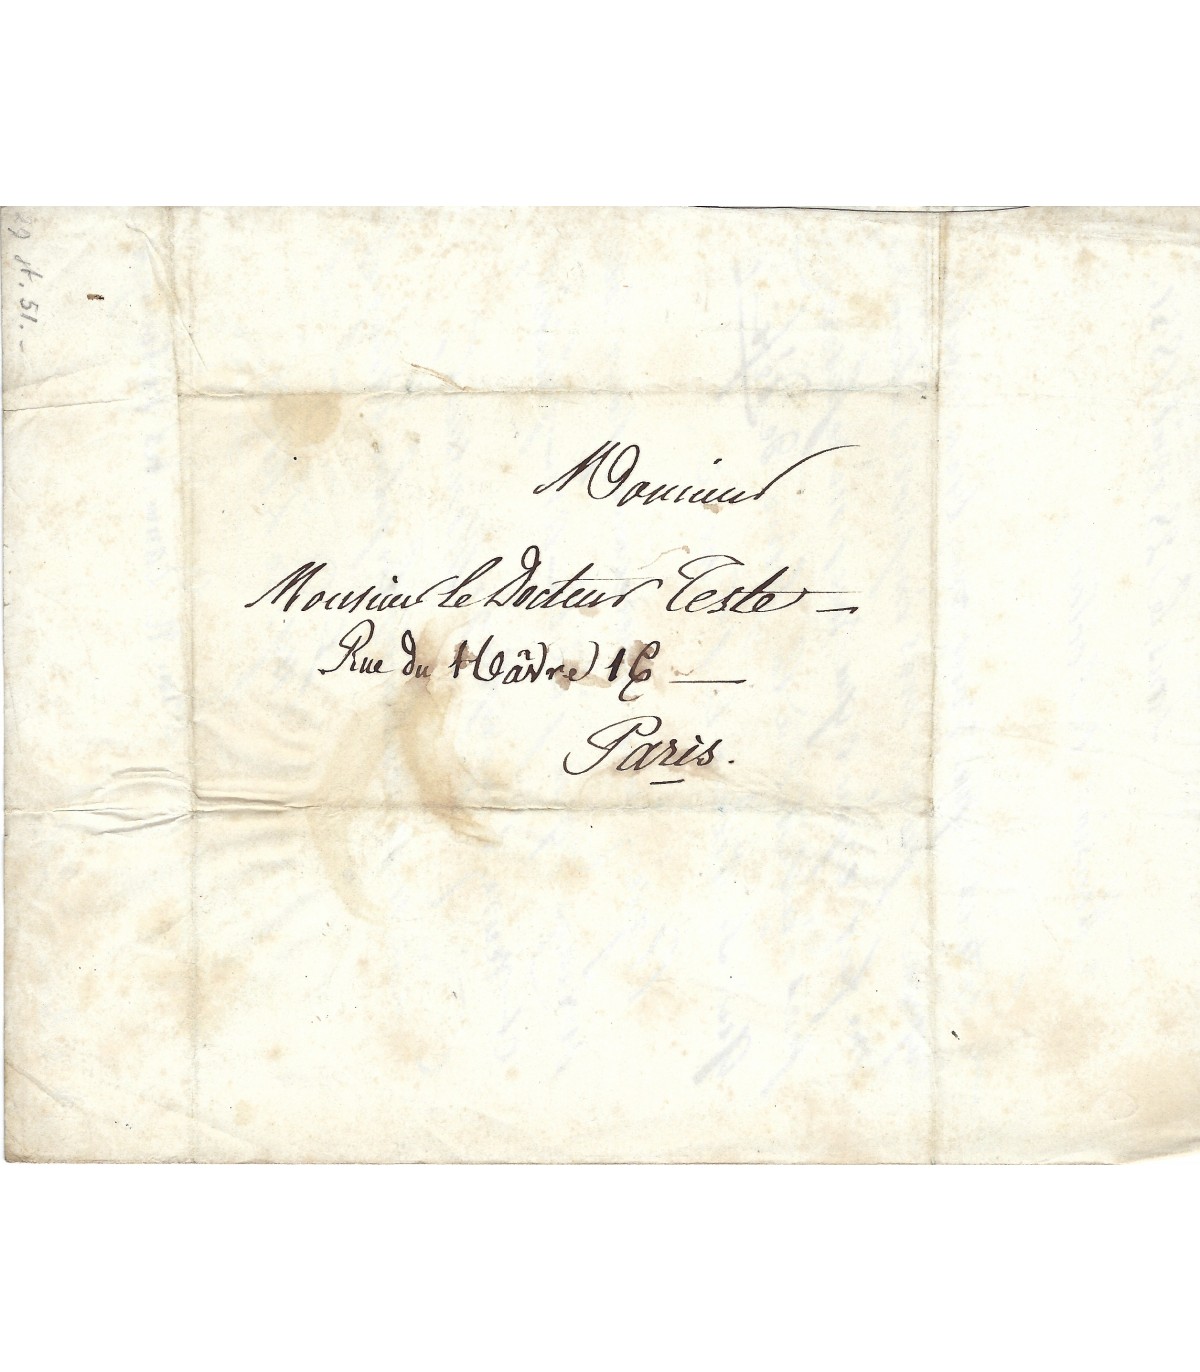 Monsieur
Monsieur le Docteur Teste —
Rue du Hâvre 16 —
Paris.
51.-